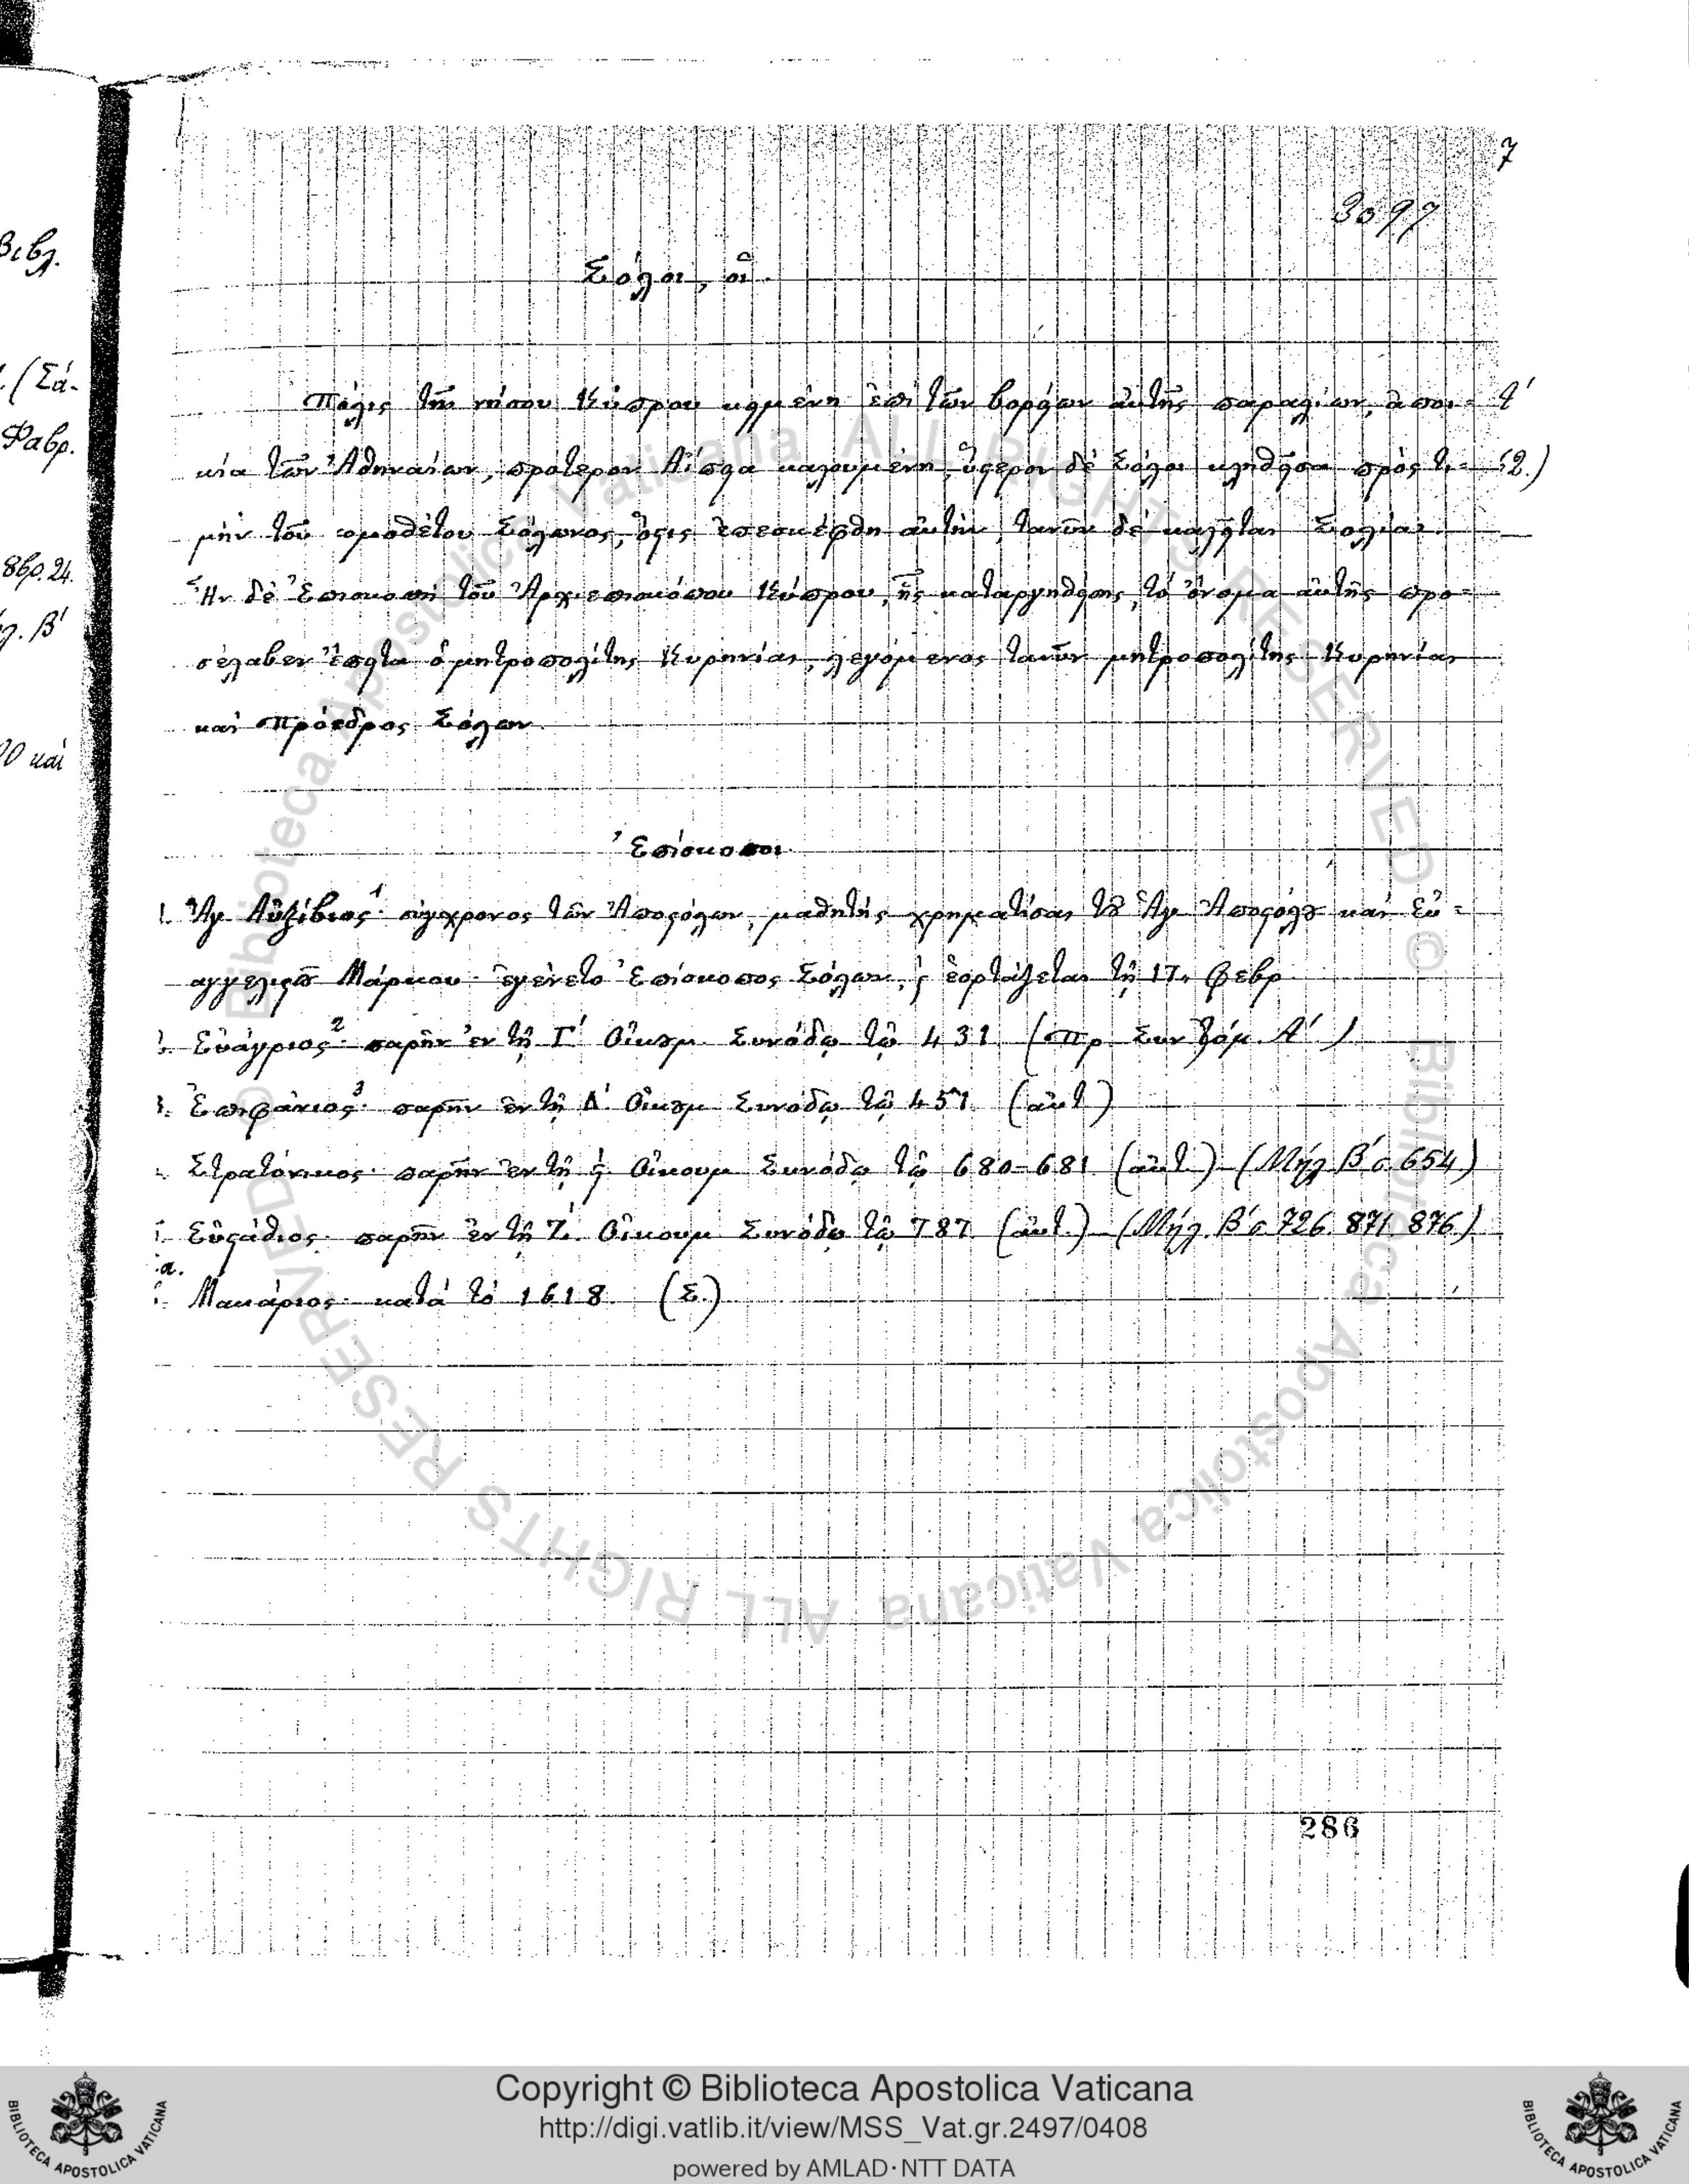 7
3097
Σόλοι, οἱ.
Πόλις τῆς νήσου Κύπρου κειμένη ἐπὶ τῶν βορείων αὐτῆς παραλίων, ἀποι=
κία τῶν Ἀθηναίων, πρότερον Αἴπεια καλουμένη, ὕστερον δὲ Σόλοι κληθεῖσα πρὸς τι=
μὴν τοῦ νομοθέτου Σόλωνος, ὅστις ἐπεσκέφθη αὐτήν, τανῦν δὲ καλεῖται Σολέας.
Ἦν δὲ Ἐπισκοπὴ τοῦ Ἀρχιεπισκόπου Κύπρου, ἧς καταργηθείσης, τὸ ὄνομα αὐτῆς προ=
σέλαβεν ἔπειτα ὁ μητροπολίτης Κυρηνίας, λεγόμενος τανῦν μητροπολίτης Κυρηνίας
καὶ Πρόεδρος Σόλων.
Ἐπίσκοποι.
1. Ἅγ. Αὐξίβιος¹· σύγχρονος τῶν Ἀποστόλων, μαθητὴς χρηματίσας τοῦ Ἁγ. Ἀποστόλου καὶ Εὐ=
αγγελιστοῦ Μάρκου· ἐγένετο Ἐπίσκοπος Σόλων, ἑορτάζεται τῇ 17. Φεβρ.
2. Εὐάγριος²· παρῆν ἐν τῇ Γ΄ Οἰκουμ. Συνόδῳ τῷ 431 (Πρ. Συν. τόμ. Α΄)
3. Ἐπιφάνιος³· παρῆν ἐν τῇ Δ΄. Οἰκουμ. Συνόδῳ τῷ 451. (αὐτ.)
Στρατόνικος· παρῆν ἐν τῇ ϛ΄. Οἰκουμ. Συνόδῳ τῷ 680-681 (αὐτ.) (Μήλ. Β΄ σ. 654)
Εὐστάθιος· παρῆν ἐν τῇ Ζ΄. Οἰκουμ. Συνόδῳ τῷ 787. (αὐτ.) (Μήλ. Β΄ σ. 726. 871. 876.)
Μακάριος· κατὰ τὸ 1618. (Σ.)
286
Βιβλ.
(Σά-
Φαβρ.
και
Copyright © Biblioteca Apostolica Vaticana
http://digi.vatlib.it/view/MSS_Vat.gr.2497/0408
powered by AMLAD·NTT DATA
BIBLIOTECA APOSTOLICA VATICANA
BIBLIOTECA APOSTOLICA VATICANA